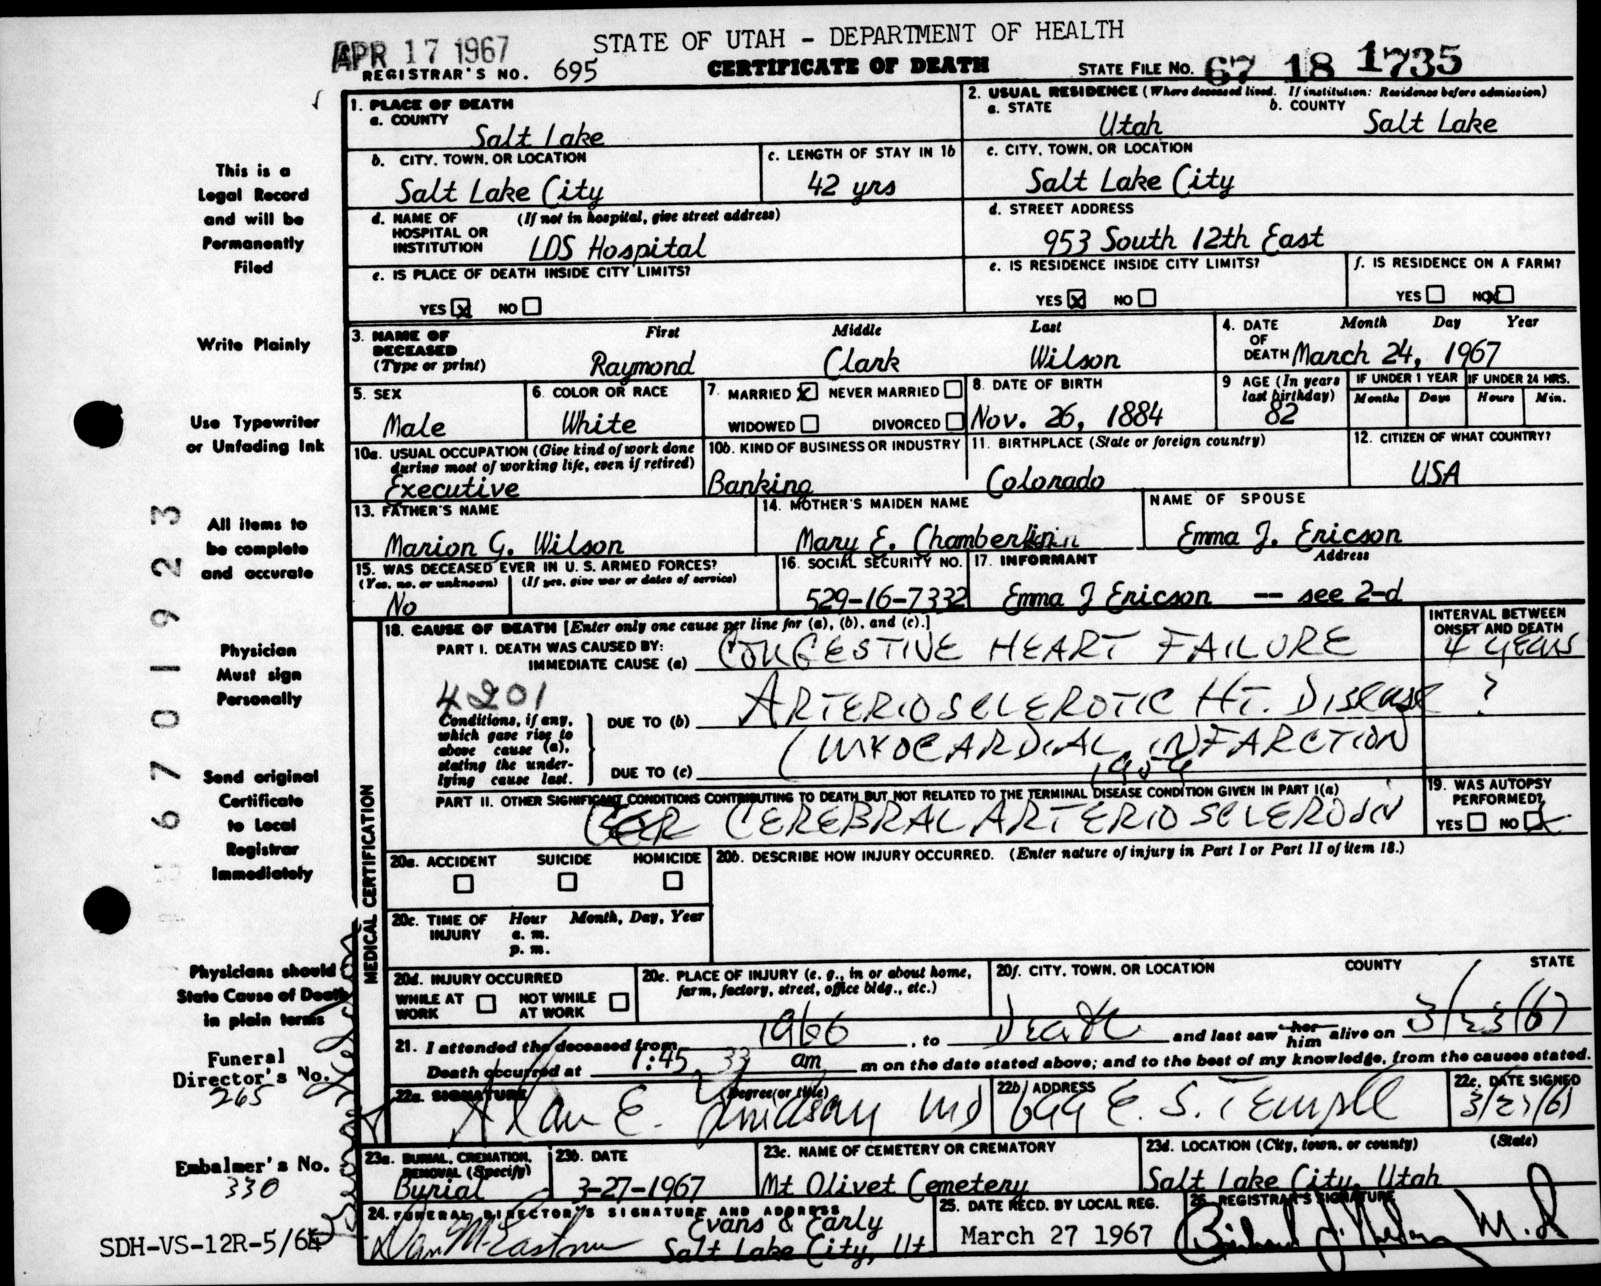 APR 17 1967
STATE OF UTAH - DEPARTMENT OF HEALTH
REGISTRAR'S NO. 695
CERTIFICATE OF DEATH
STATE FILE NO. 67 18 1735
This is a
Legal Record
and will be
Permanently
Filed
Write Plainly
Use Typewriter
or Unfading Ink
All items to
be complete
and accurate
Physician
Must sign
Personally
Send original
Certificate
to Local
Registrar
Immediately
Physicians should
State Cause of Death
in plain terms
Funeral
Director's No.
265
Embalmer's No.
330
SDH-VS-12R-5/65
6701923
1. PLACE OF DEATH
a. COUNTY
Salt Lake
2. USUAL RESIDENCE (Where deceased lived. If institution: Residence before admission)
a. STATE
Utah
b. COUNTY
Salt Lake
b. CITY, TOWN, OR LOCATION
Salt Lake City
c. LENGTH OF STAY IN 1b
42 yrs
c. CITY, TOWN, OR LOCATION
Salt Lake City
d. NAME OF HOSPITAL OR INSTITUTION (If not in hospital, give street address)
LDS Hospital
d. STREET ADDRESS
953 South 12th East
e. IS PLACE OF DEATH INSIDE CITY LIMITS?
YES X NO
e. IS RESIDENCE INSIDE CITY LIMITS?
YES X NO
f. IS RESIDENCE ON A FARM?
YES NO X
3. NAME OF DECEASED (Type or print)
First Middle Last
Raymond Clark Wilson
4. DATE OF DEATH
Month Day Year
March 24, 1967
5. SEX
Male
6. COLOR OR RACE
White
7. MARRIED X NEVER MARRIED
WIDOWED DIVORCED
8. DATE OF BIRTH
Nov. 26, 1884
9 AGE (In years last birthday)
82
IF UNDER 1 YEAR
Months Days
IF UNDER 24 HRS.
Hours Min.
10a. USUAL OCCUPATION (Give kind of work done during most of working life, even if retired)
Executive
10b. KIND OF BUSINESS OR INDUSTRY
Banking
11. BIRTHPLACE (State or foreign country)
Colorado
12. CITIZEN OF WHAT COUNTRY?
USA
13. FATHER'S NAME
Marion G. Wilson
14. MOTHER'S MAIDEN NAME
Mary E. Chamberlin
NAME OF SPOUSE
Emma J. Ericson
15. WAS DECEASED EVER IN U. S. ARMED FORCES?
(Yes, no, or unknown) (If yes, give war or dates of service)
No
16. SOCIAL SECURITY NO.
529-16-7332
17. INFORMANT Address
Emma J Ericson -- see 2-d
MEDICAL CERTIFICATION
18. CAUSE OF DEATH [Enter only one cause per line for (a), (b), and (c).]
INTERVAL BETWEEN ONSET AND DEATH
PART I. DEATH WAS CAUSED BY:
IMMEDIATE CAUSE (a) CONGESTIVE HEART FAILURE 4 YEARS
4201
Conditions, if any, which gave rise to above cause (a), stating the underlying cause last.
DUE TO (b) ARTERIOSCLEROTIC HT. DISEASE ?
DUE TO (c) (MYOCARDIAL INFARCTION
PART II. OTHER SIGNIFICANT CONDITIONS CONTRIBUTING TO DEATH BUT NOT RELATED TO THE TERMINAL DISEASE CONDITION GIVEN IN PART I(a)
CEREBRAL ARTERIOSCLEROSIS
19. WAS AUTOPSY PERFORMED?
YES NO X
20a. ACCIDENT SUICIDE HOMICIDE
20b. DESCRIBE HOW INJURY OCCURRED. (Enter nature of injury in Part I or Part II of item 18.)
20c. TIME OF INJURY
Hour Month, Day, Year
a. m.
p. m.
20d. INJURY OCCURRED
WHILE AT WORK NOT WHILE AT WORK
20e. PLACE OF INJURY (e. g., in or about home, farm, factory, street, office bldg., etc.)
20f. CITY, TOWN, OR LOCATION COUNTY STATE
21. I attended the deceased from 1966, to Death and last saw her him alive on 3/23/67
Death occurred at 1:45 am m on the date stated above; and to the best of my knowledge, from the causes stated.
22a. SIGNATURE (Degree or title)
Alan E. Lindsay MD
22b. ADDRESS
E. S. Temple
22c. DATE SIGNED
23a. BURIAL, CREMATION, REMOVAL (Specify)
Burial
23b. DATE
3-27-1967
23c. NAME OF CEMETERY OR CREMATORY
Mt Olivet Cemetery
23d. LOCATION (City, town, or county) (State)
Salt Lake City, Utah
24. FUNERAL DIRECTOR'S SIGNATURE AND ADDRESS
Evans & Early
Salt Lake City, Ut
25. DATE RECD. BY LOCAL REG.
March 27 1967
26. REGISTRAR'S SIGNATURE
M.D